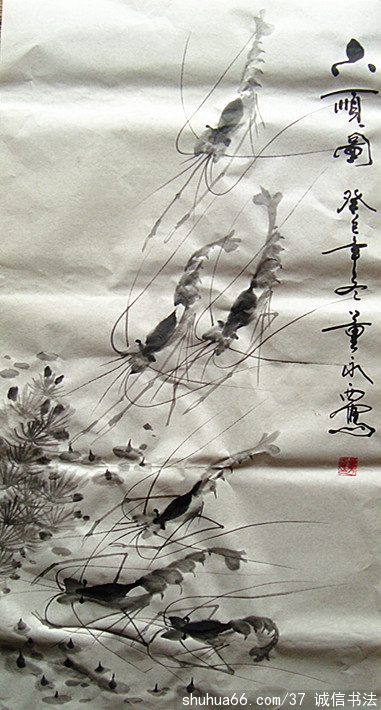 六順圖 癸巳年冬 董永西寫
shuhua66.com/37 诚信书法